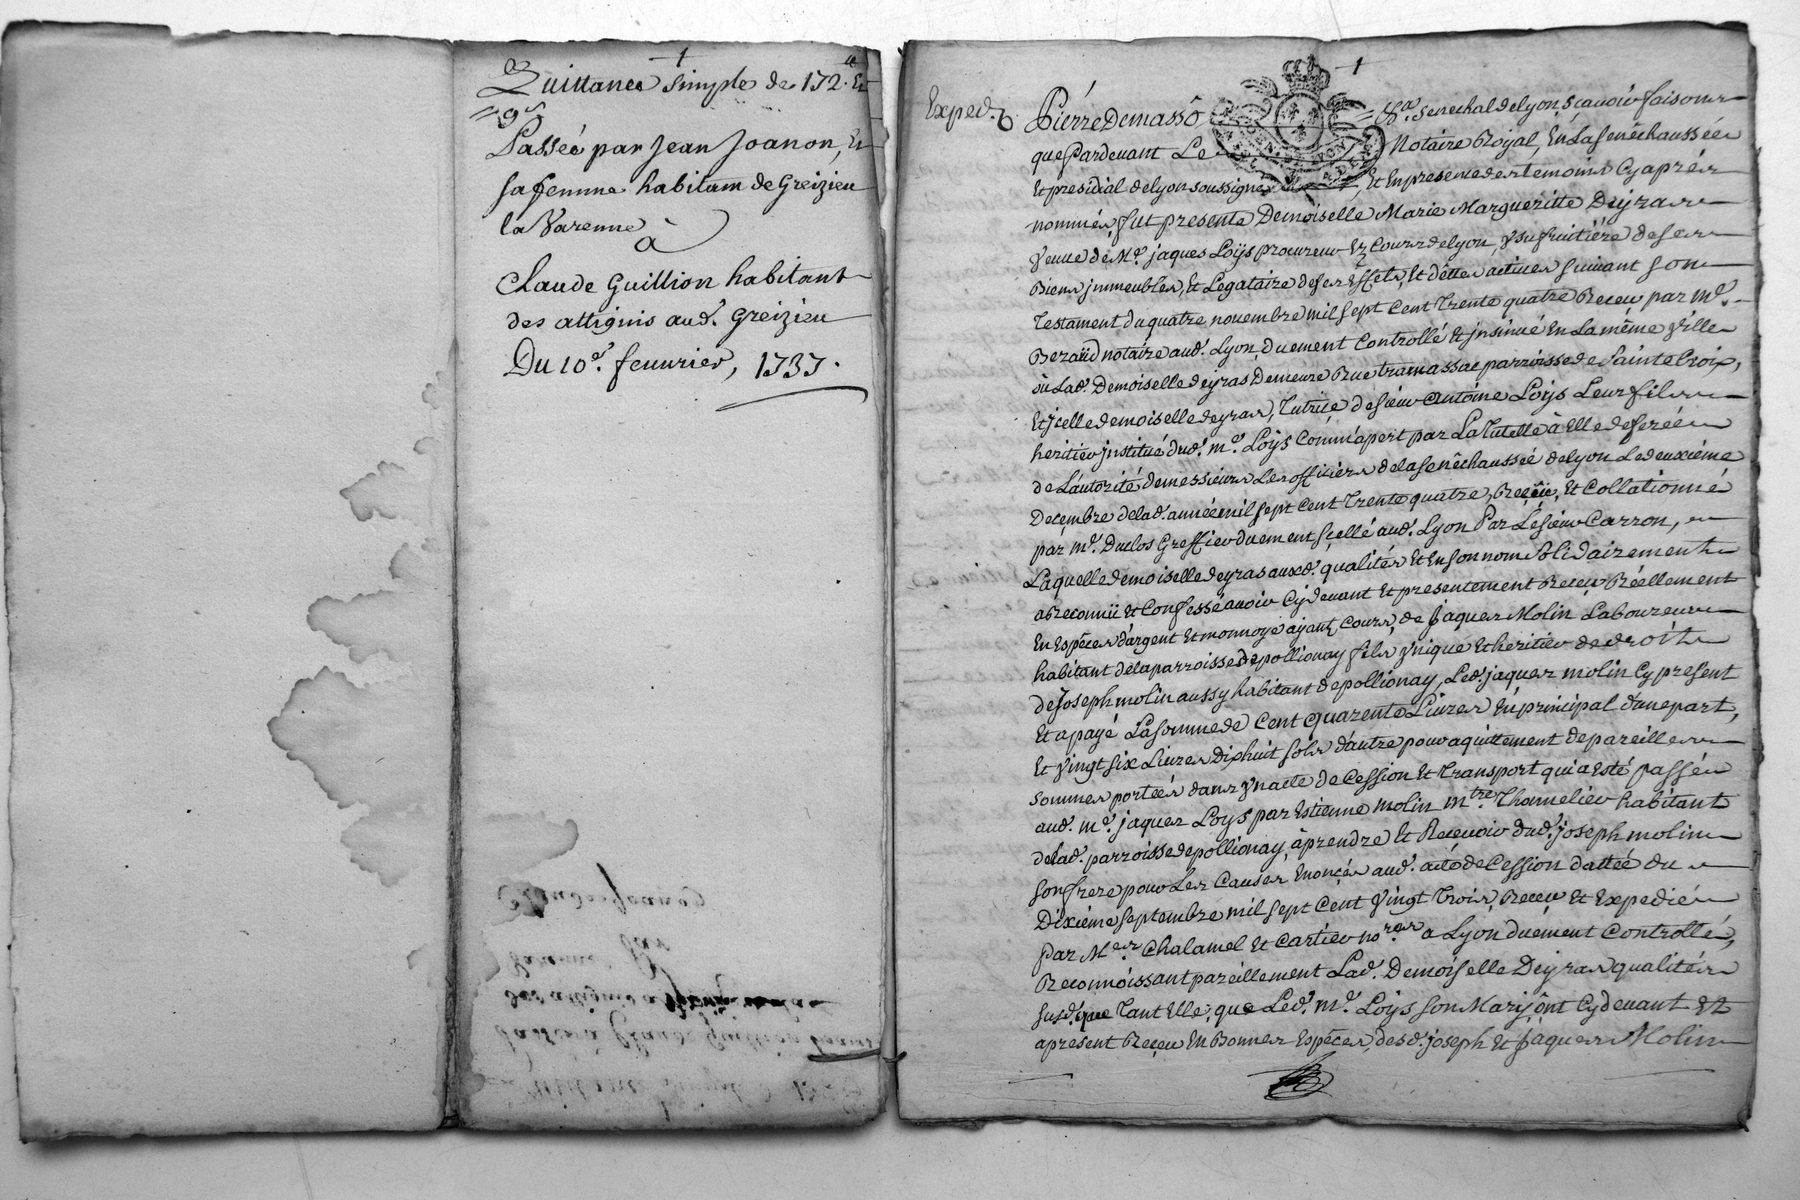 1
Quittance simple de 172.tt Et
9s
Passée par Jean Joanon, Et
sa femme habitam de Greizieu
la Varenne
à
Claude Guillion habitant
des attignis aud. Greizieu
Du 10e. feuvrier, 1737.
1
Exped.
Piérre Demassô Sénéchal de Lyon, Scauoir faisons
que Pardeuant Le Notaire Royal, En La senéchaussée
Et presidial de Lyon soussigné, Et En presence des temoins Cy aprés
nommés, fut presente Demoiselle Marie Margueritte Deyras
Veuue de Me. jaques Loÿs Procureur Ez Cours de Lyon, Vsufruitiére de ses
Biens jmmeubles, Et Legataire de ses Effets, Et dettes actiues suiuant son
Testament du quatre nouembre mil sept Cent Trente quatre Receu par Me.
Beraüd notaire aud. Lyon, duement Controllé Et jnsinué En La même Ville
où Lad. Demoiselle deyras Demeure Rue tramassac parroisse de Sainte Croix,
Et jcelle demoiselle deyras, Tutrice de sieur antoine Loÿs Leur fils
heritier jnstitué dud. me. Loÿs Comm'apert par La Tutelle à Elle deferée
de L'autorité de messieurs Les officiers de la senêchaussée de Lyon Le deuxiéme
Decembre de lad. année mil sept Cent Trente quatre, Receüe, Et Collationné
par me. Duclos Greffier duement scellé aud. Lyon Par Le sieur Carron,
Laquelle demoiselle deyras auxd. qualités Et En son nom Solidairement
a Reconnü Et Confessé auoir Cy deuant Et presentement Receu Réellement
En Espéces d'argent Et monnoye ayant Cours, de Jaques Molin Laboureur
habitant de la parroisse de pollionay fils Vnique Et heritier de droit
de Joseph molin aussy habitant de pollionay, Led. jaques molin Cy present
Et a payé La somme de Cent quarente Liures En principal d'une part,
Et Vingt six Liures dixhuit sols d'autre pour aquittement de pareilles
sommes portées dans Vn acte de Cession Et Transport qui a Esté passé
aud. me. jaques Loys par Estienne molin mtre Thonnelier habitant
de lad. parroisse de pollionay, à prendre Et Receuoir dud. joseph molin
son frere pour Les Causes Enoncés aud. acte de Cession dattée du
Dixiéme septembre mil sept Cent Vingt Trois, Receu Et Expedié
par Mes. Chalamel Et Cartier nores a Lyon duement Controllé,
Reconnoissant pareillement Lad. Demoiselle Deyras qualités
susd. que Tant Elle, que Led. me. Loÿs son Mary ônt Cy deuant Et
apresent Receu En Bonnes Espéces, desd. joseph Et Jaques Molin